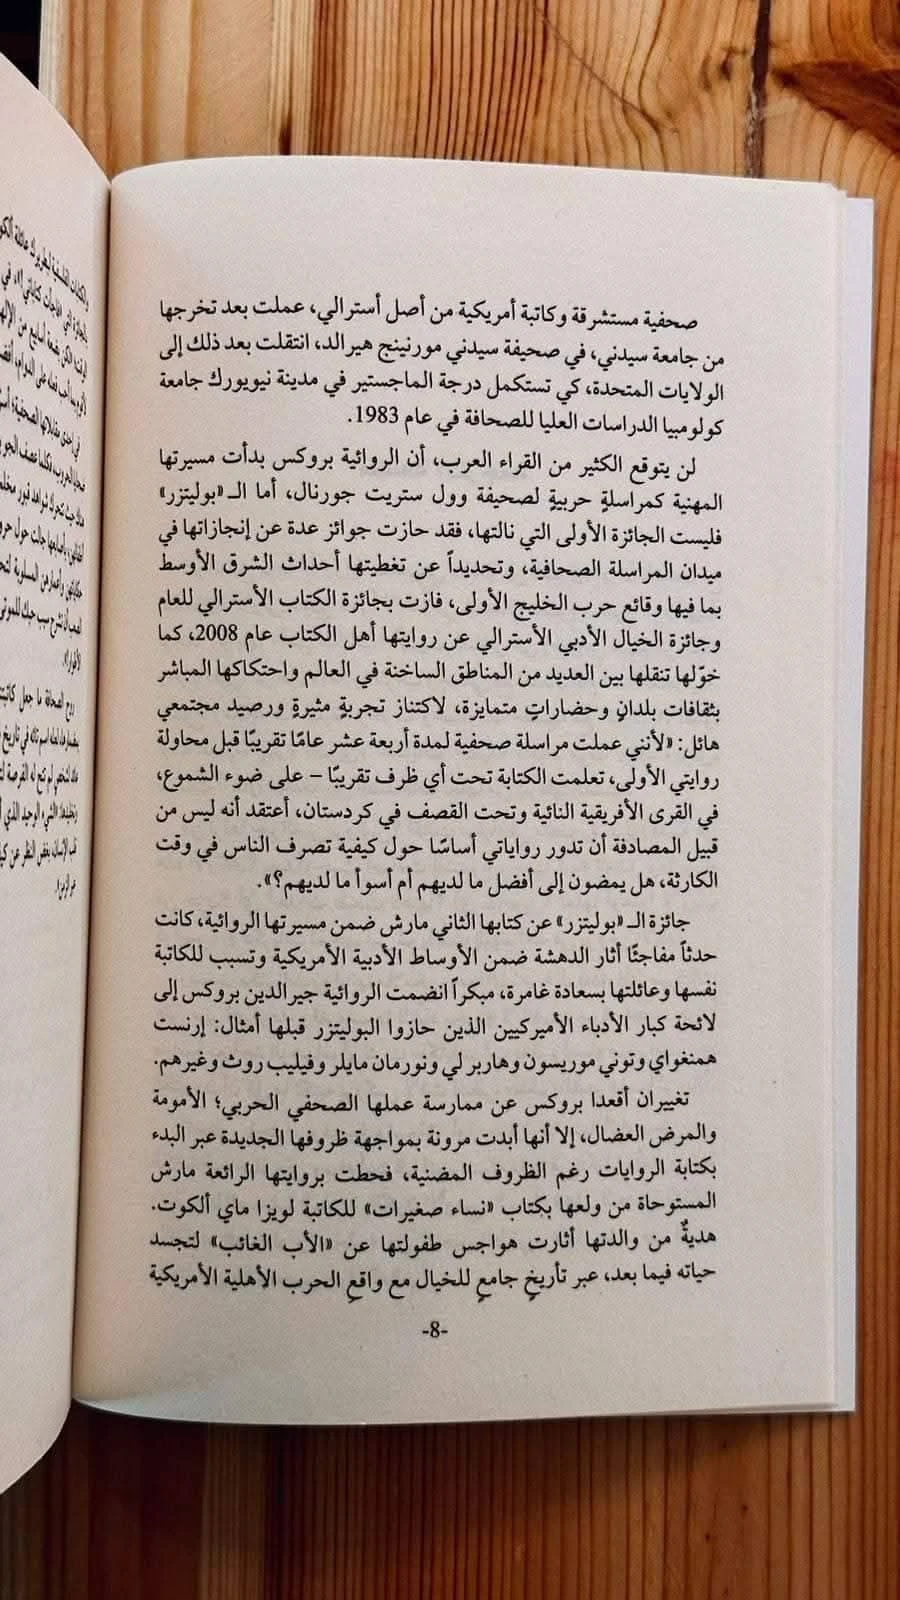 صحفية مستشرقة وكاتبة أمريكية من أصل أسترالي، عملت بعد تخرجها
من جامعة سيدني، في صحيفة سيدني مورنينج هيرالد، انتقلت بعد ذلك إلى
الولايات المتحدة، كي تستكمل درجة الماجستير في مدينة نيويورك جامعة
كولومبيا الدراسات العليا للصحافة في عام 1983.
لن يتوقع الكثير من القراء العرب، أن الروائية بروكس بدأت مسيرتها
المهنية كمراسلةٍ حربيةٍ لصحيفة وول ستريت جورنال، أما الـ «بوليتزر»
فليست الجائزة الأولى التي نالتها، فقد حازت جوائز عدة عن إنجازاتها في
ميدان المراسلة الصحافية، وتحديداً عن تغطيتها أحداث الشرق الأوسط
بما فيها وقائع حرب الخليج الأولى، فازت بجائزة الكتاب الأسترالي للعام
وجائزة الخيال الأدبي الأسترالي عن روايتها أهل الكتاب عام 2008، كما
خوّلها تنقلها بين العديد من المناطق الساخنة في العالم واحتكاكها المباشر
بثقافات بلدانٍ وحضاراتٍ متمايزة، لاكتناز تجربةٍ مثيرةٍ ورصيد مجتمعي
هائل: «لأنني عملت مراسلة صحفية لمدة أربعة عشر عامًا تقريبًا قبل محاولة
روايتي الأولى، تعلمت الكتابة تحت أي ظرف تقريبًا – على ضوء الشموع،
في القرى الأفريقية النائية وتحت القصف في كردستان، أعتقد أنه ليس من
قبيل المصادفة أن تدور رواياتي أساسًا حول كيفية تصرف الناس في وقت
الكارثة، هل يمضون إلى أفضل ما لديهم أم أسوأ ما لديهم؟».
جائزة الـ «بوليتزر» عن كتابها الثاني مارش ضمن مسيرتها الروائية، كانت
حدثاً مفاجئًا أثار الدهشة ضمن الأوساط الأدبية الأمريكية وتسبب للكاتبة
نفسها وعائلتها بسعادة غامرة، مبكراً انضمت الروائية جيرالدين بروكس إلى
لائحة كبار الأدباء الأميركيين الذين حازوا البوليتزر قبلها أمثال: إرنست
همنغواي وتوني موريسون وهاربر لي ونورمان مايلر وفيليب روث وغيرهم.
تغييران أقعدا بروكس عن ممارسة عملها الصحفي الحربي؛ الأمومة
والمرض العضال، إلا أنها أبدت مرونة بمواجهة ظروفها الجديدة عبر البدء
بكتابة الروايات رغم الظروف المضنية، فحظت بروايتها الرائعة مارش
المستوحاة من ولعها بكتاب «نساء صغيرات» للكاتبة لويزا ماي ألكوت.
هديةٌ من والدتها أثارت هواجس طفولتها عن «الأب الغائب» لتجسد
حياته فيما بعد، عبر تأريخٍ جامعٍ للخيال مع واقعِ الحرب الأهلية الأمريكية
-8-